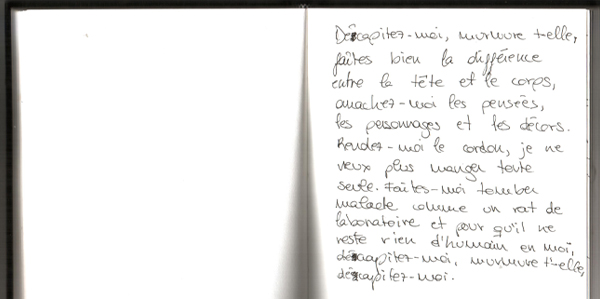 Décapitez-moi, murmure t-elle,
faîtes bien la différence
entre la tête et le corps,
arrachez-moi les pensées,
les personnages et les décors.
Rendez-moi le cordon, je ne
veux plus manger toute
seule. Faîtes-moi tomber
malade comme un rat de
laboratoire et pour qu'il ne
reste rien d'humain en moi,
décapitez-moi, murmure t'elle,
décapitez-moi.